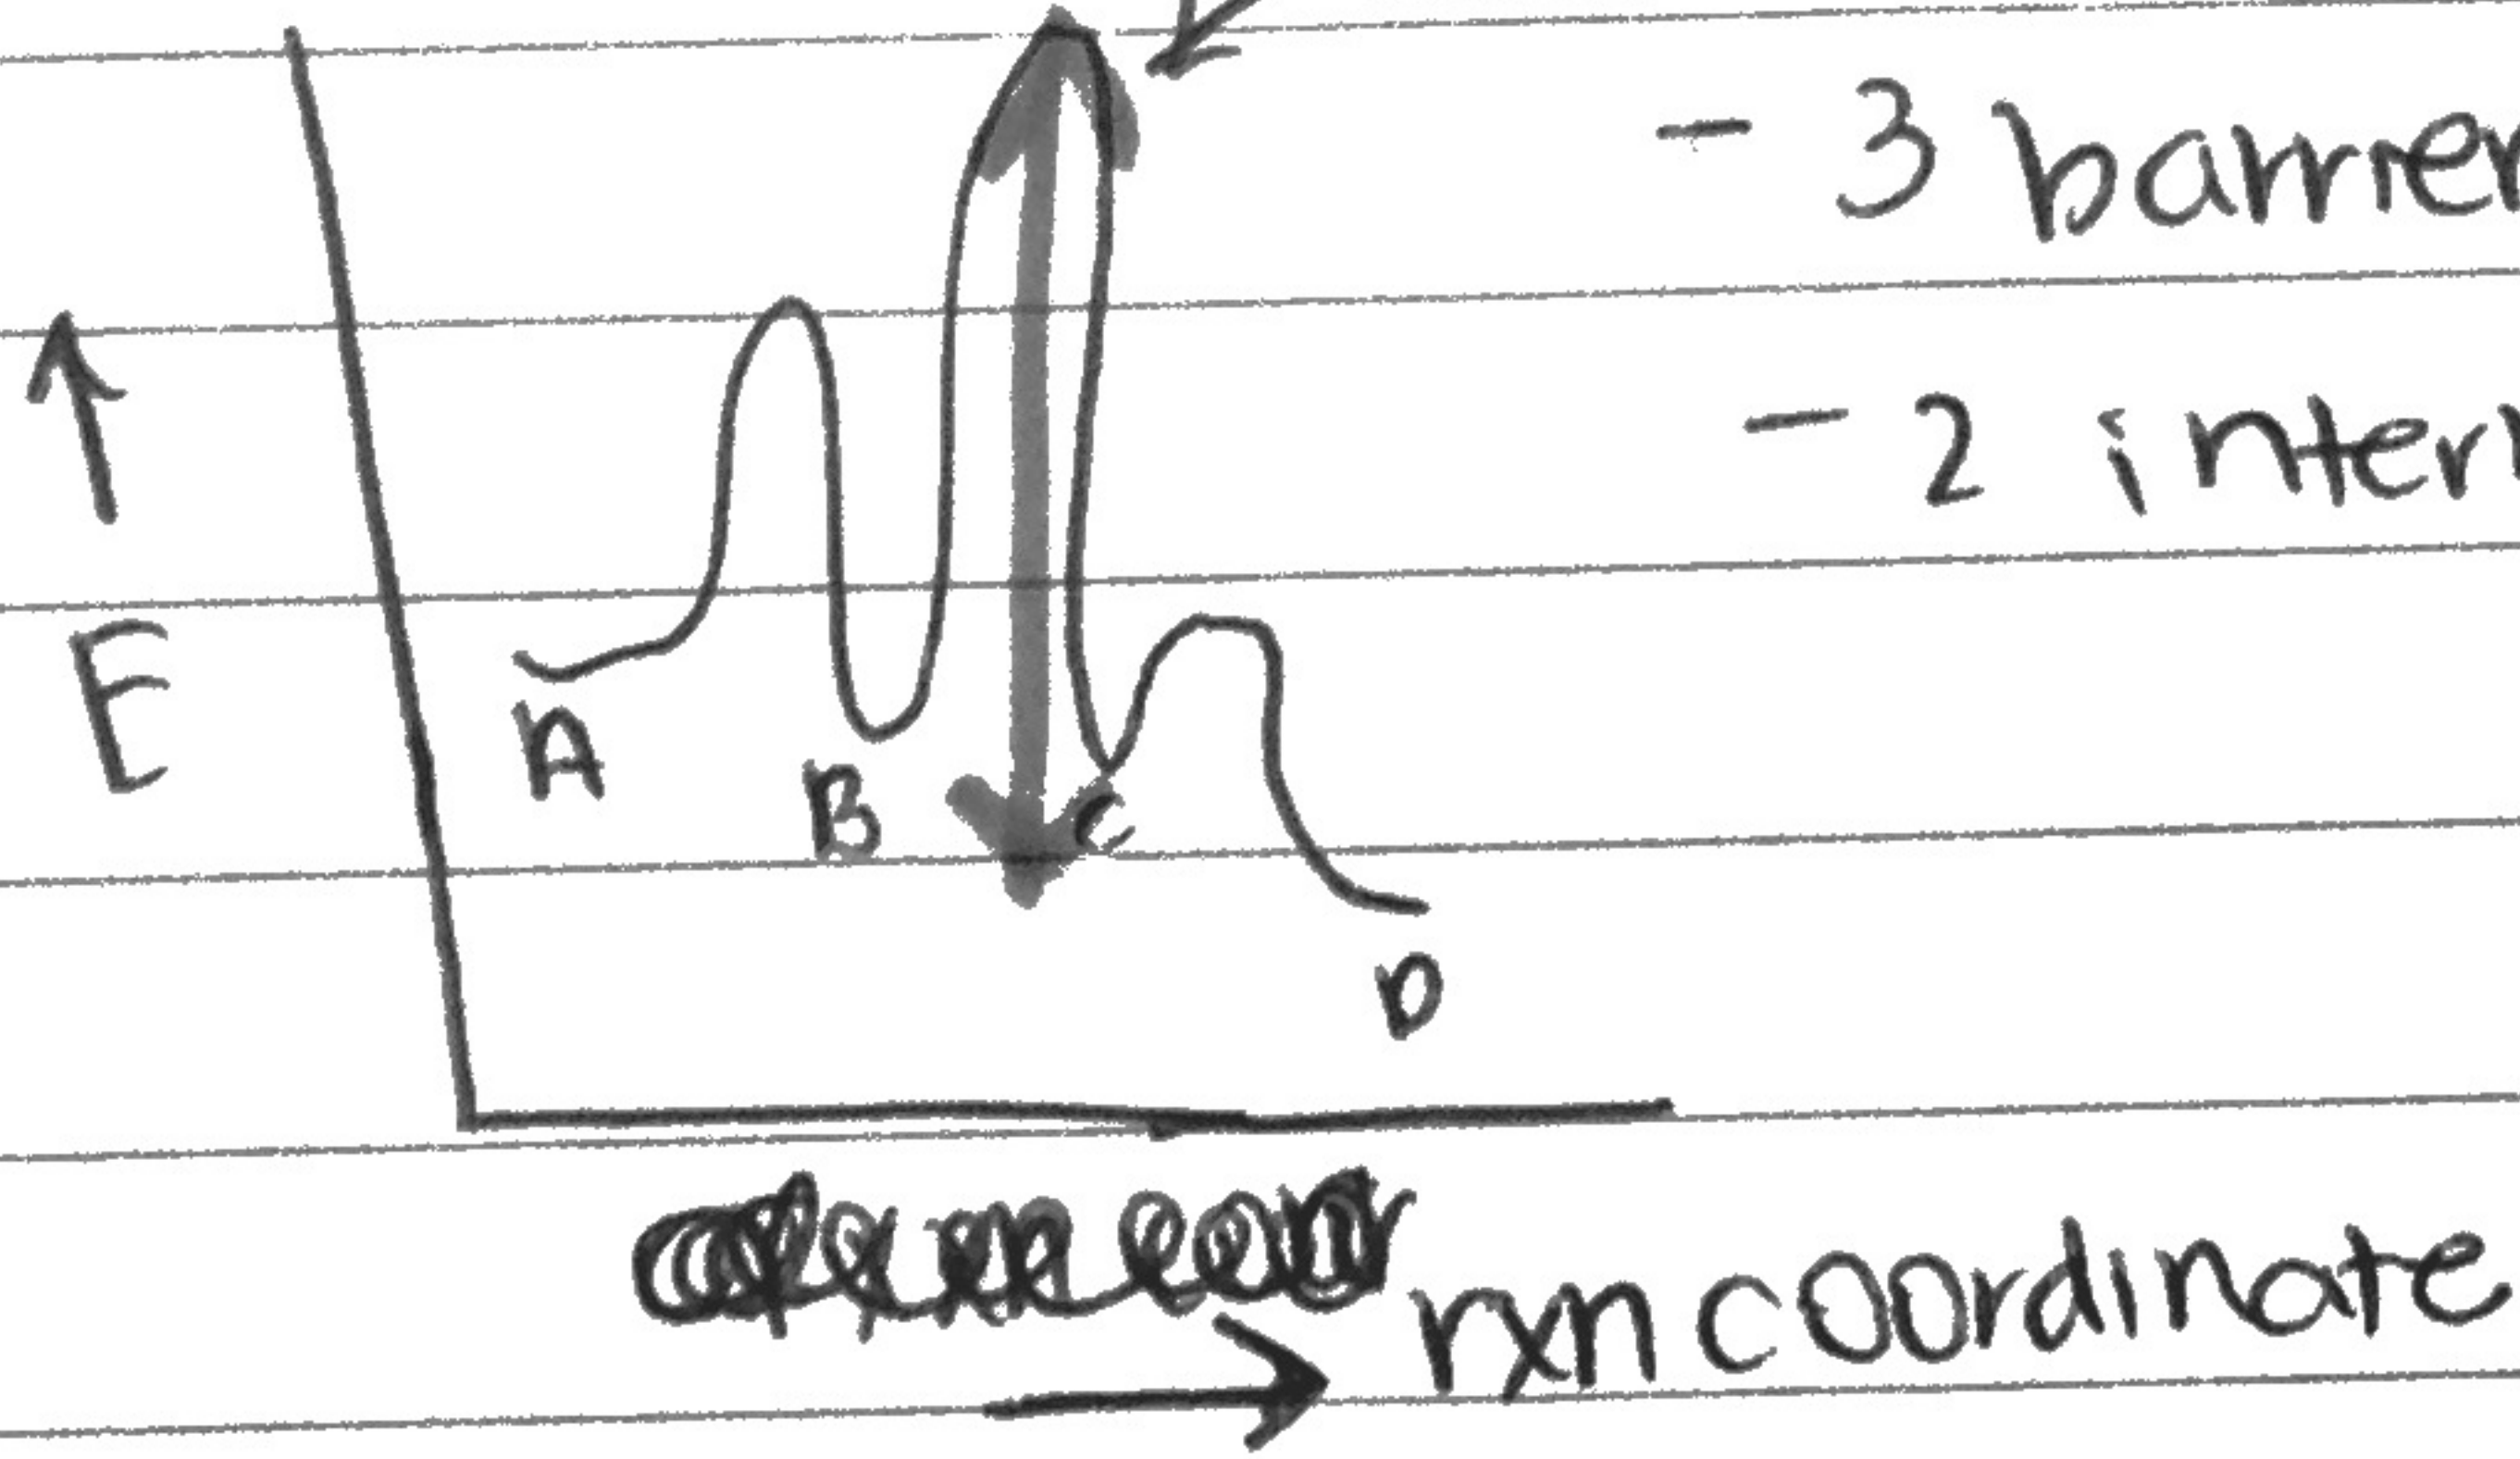 - 3 barrier
- 2 inter
E
A
B
C
D
rxn coordinate